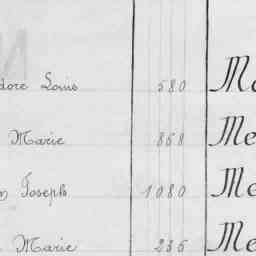 dore Louis 580 Me
Marie 868 Me
Joseph 1080 Me
Marie 235 Me